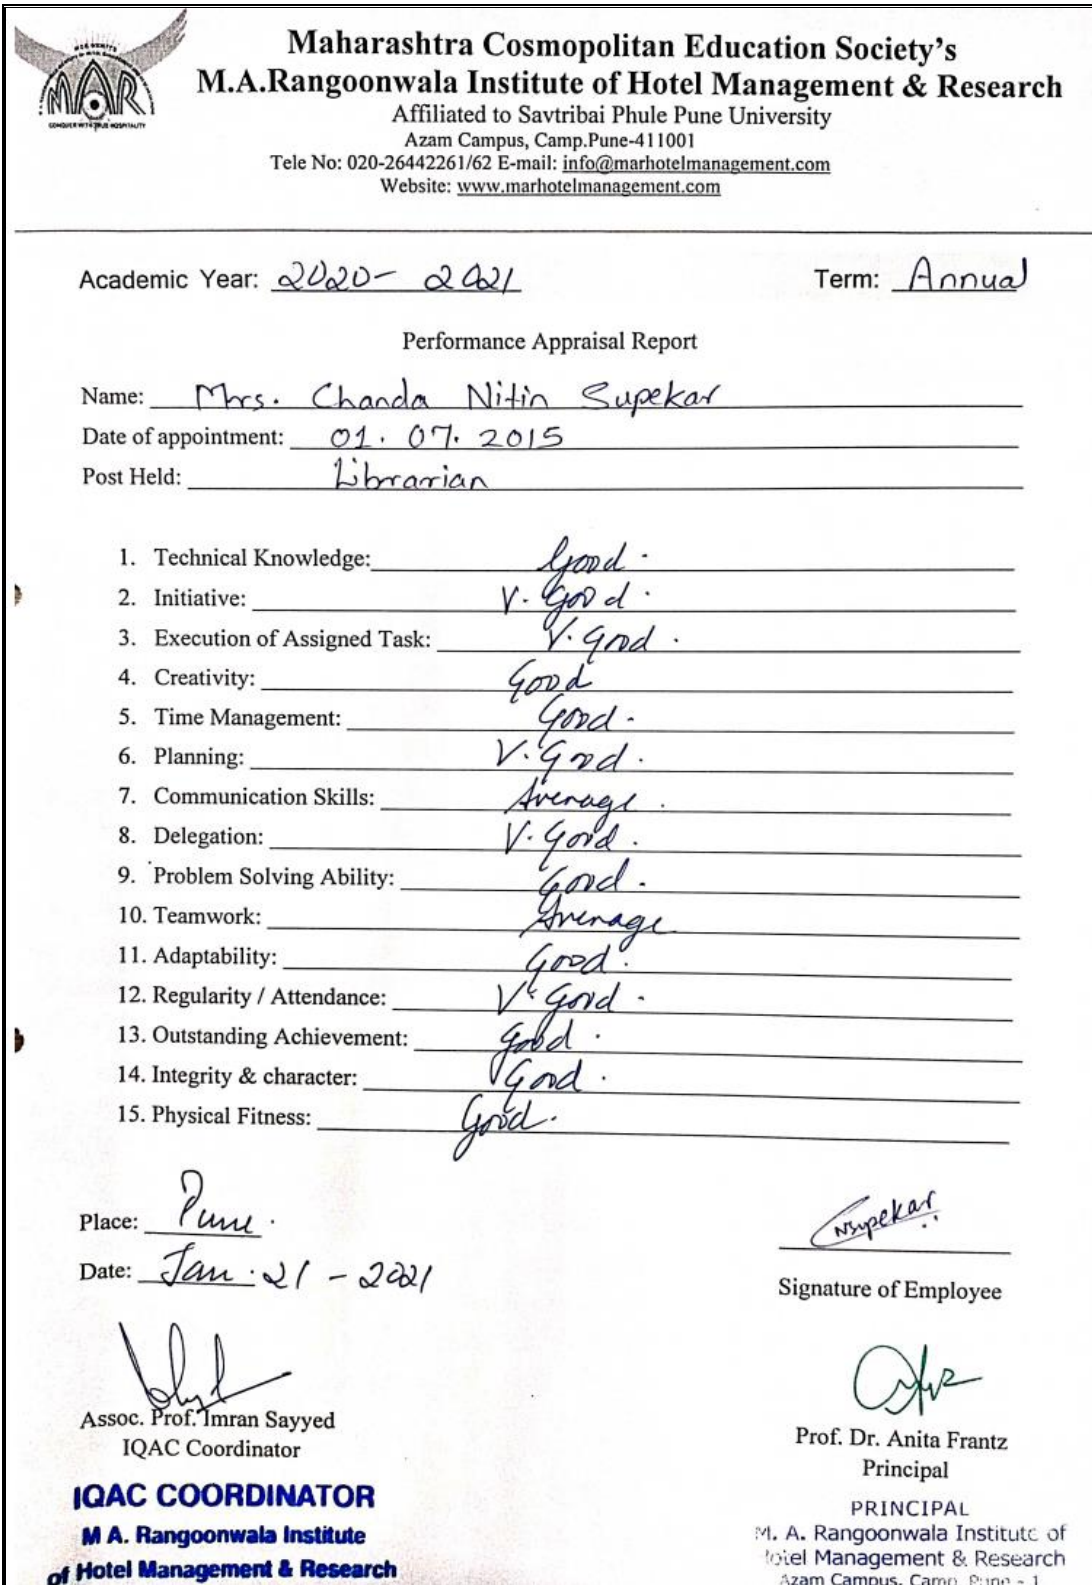 MAR
CONQUER WITH TRUE HOSPITALITY
Maharashtra Cosmopolitan Education Society's
M.A.Rangoonwala Institute of Hotel Management & Research
Affiliated to Savtribai Phule Pune University
Azam Campus, Camp.Pune-411001
Tele No: 020-26442261/62 E-mail: info@marhotelmanagement.com
Website: www.marhotelmanagement.com
Academic Year: 2020- 2021 Term: Annual
Performance Appraisal Report
Name: Mrs. Chanda Nitin Supekar
Date of appointment: 01.07.2015
Post Held: Librarian
1. Technical Knowledge: Good.
2. Initiative: V. Good.
3. Execution of Assigned Task: V. Good.
4. Creativity: Good
5. Time Management: Good.
6. Planning: V. Good.
7. Communication Skills: Average.
8. Delegation: V. Good.
9. Problem Solving Ability: Good.
10. Teamwork: Average
11. Adaptability: Good.
12. Regularity / Attendance: V. Good.
13. Outstanding Achievement: Good.
14. Integrity & character: Good.
15. Physical Fitness: Good.
Place: Pune.
Date: Jan.21-2021
NSupekar
Signature of Employee
Assoc. Prof. Imran Sayyed
IQAC Coordinator
Prof. Dr. Anita Frantz
Principal
IQAC COORDINATOR
M A. Rangoonwala Institute
of Hotel Management & Research
PRINCIPAL
M. A. Rangoonwala Institute of
Hotel Management & Research
Azam Campus, Camp, Pune - 1